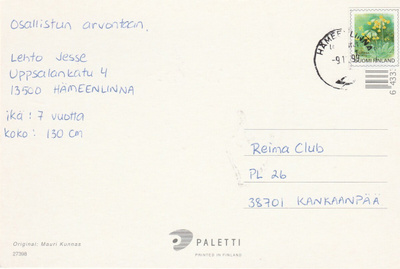 Osallistun arvontaan,
Lehto Jesse
Uppsalankatu 4
13500 HÄMEENLINNA
ikä : 7 vuotta
koko : 130 cm
HÄMEENLINNA
SUOMI FINLAND
Reima Club
PL 26
38701 KANKAANPÄÄ
Original: Mauri Kunnas
27398
PALETTI
PRINTED IN FINLAND